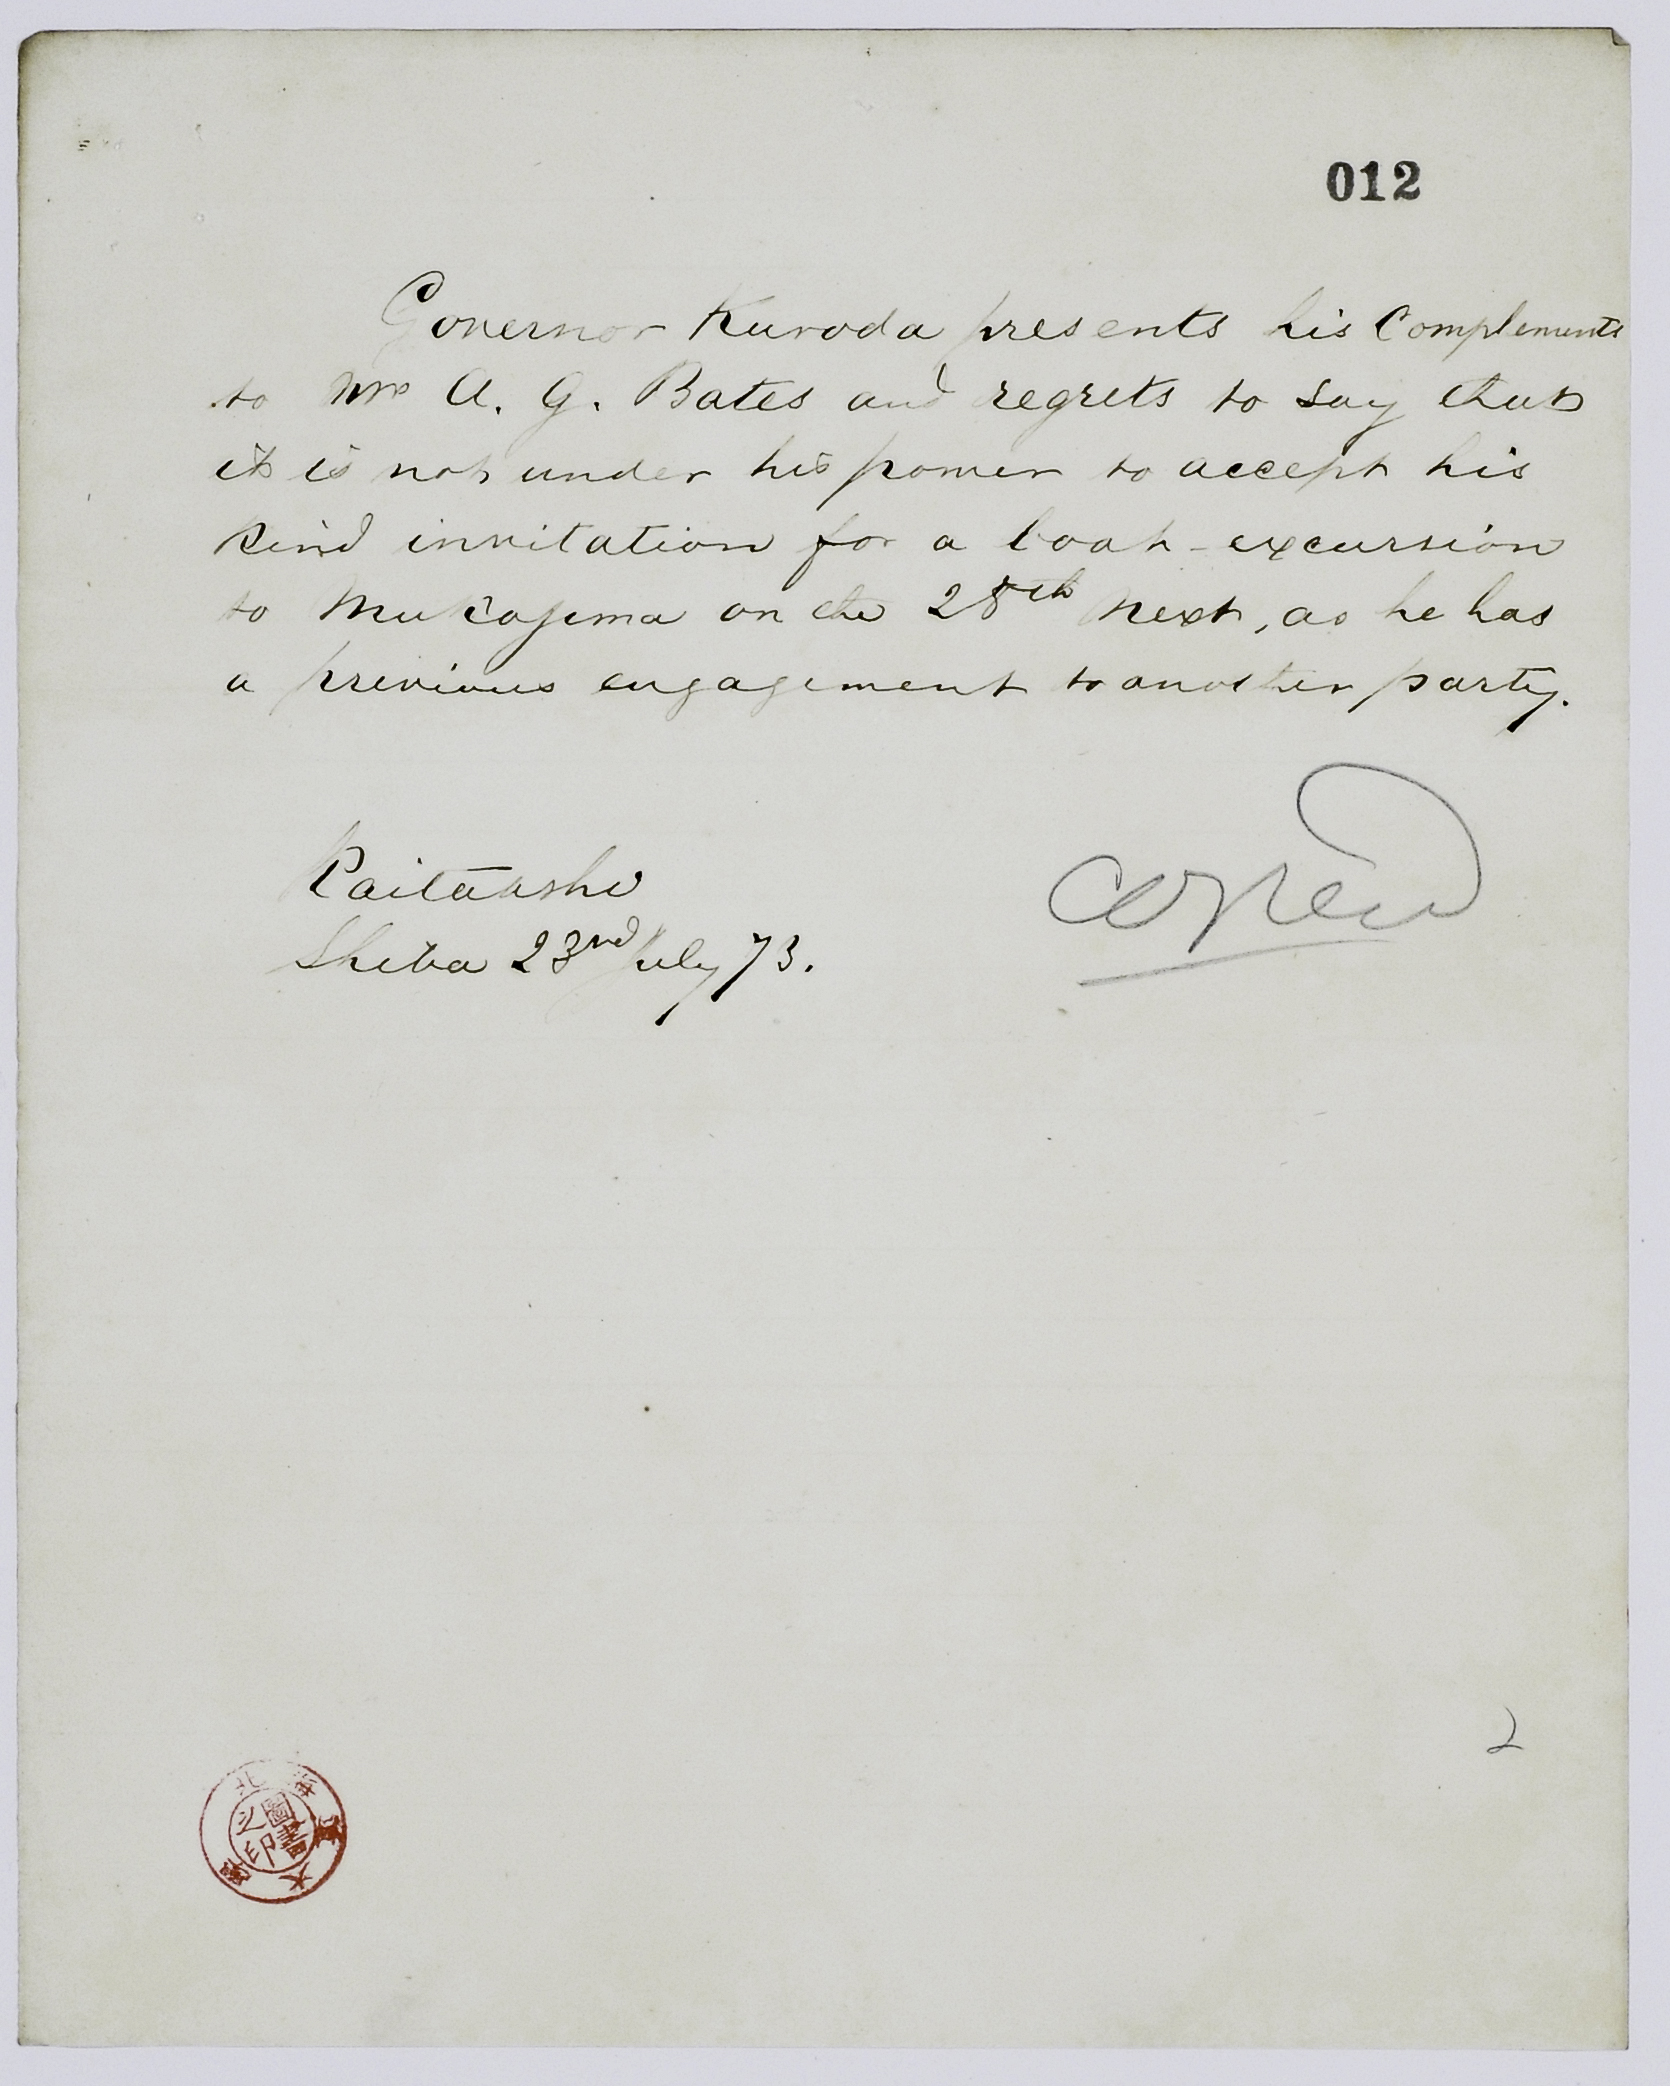 012
Governor Kuroda presents his Complements
to Mr A. G. Bates and regrets to say that
it is not under his power to accept his
kind invitation for a boat-excursion
to Mukojima on the 28th next, as he has
a previous engagement to another party.
Kaitakushi
Shiba 23rd July 73.
2
北海道大學
圖書之印